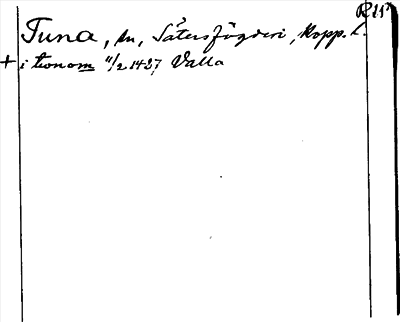 R 11
Tuna, sn, Säters fögderi, Kopp. l.
+ i tionom 11/2 1437 Valla